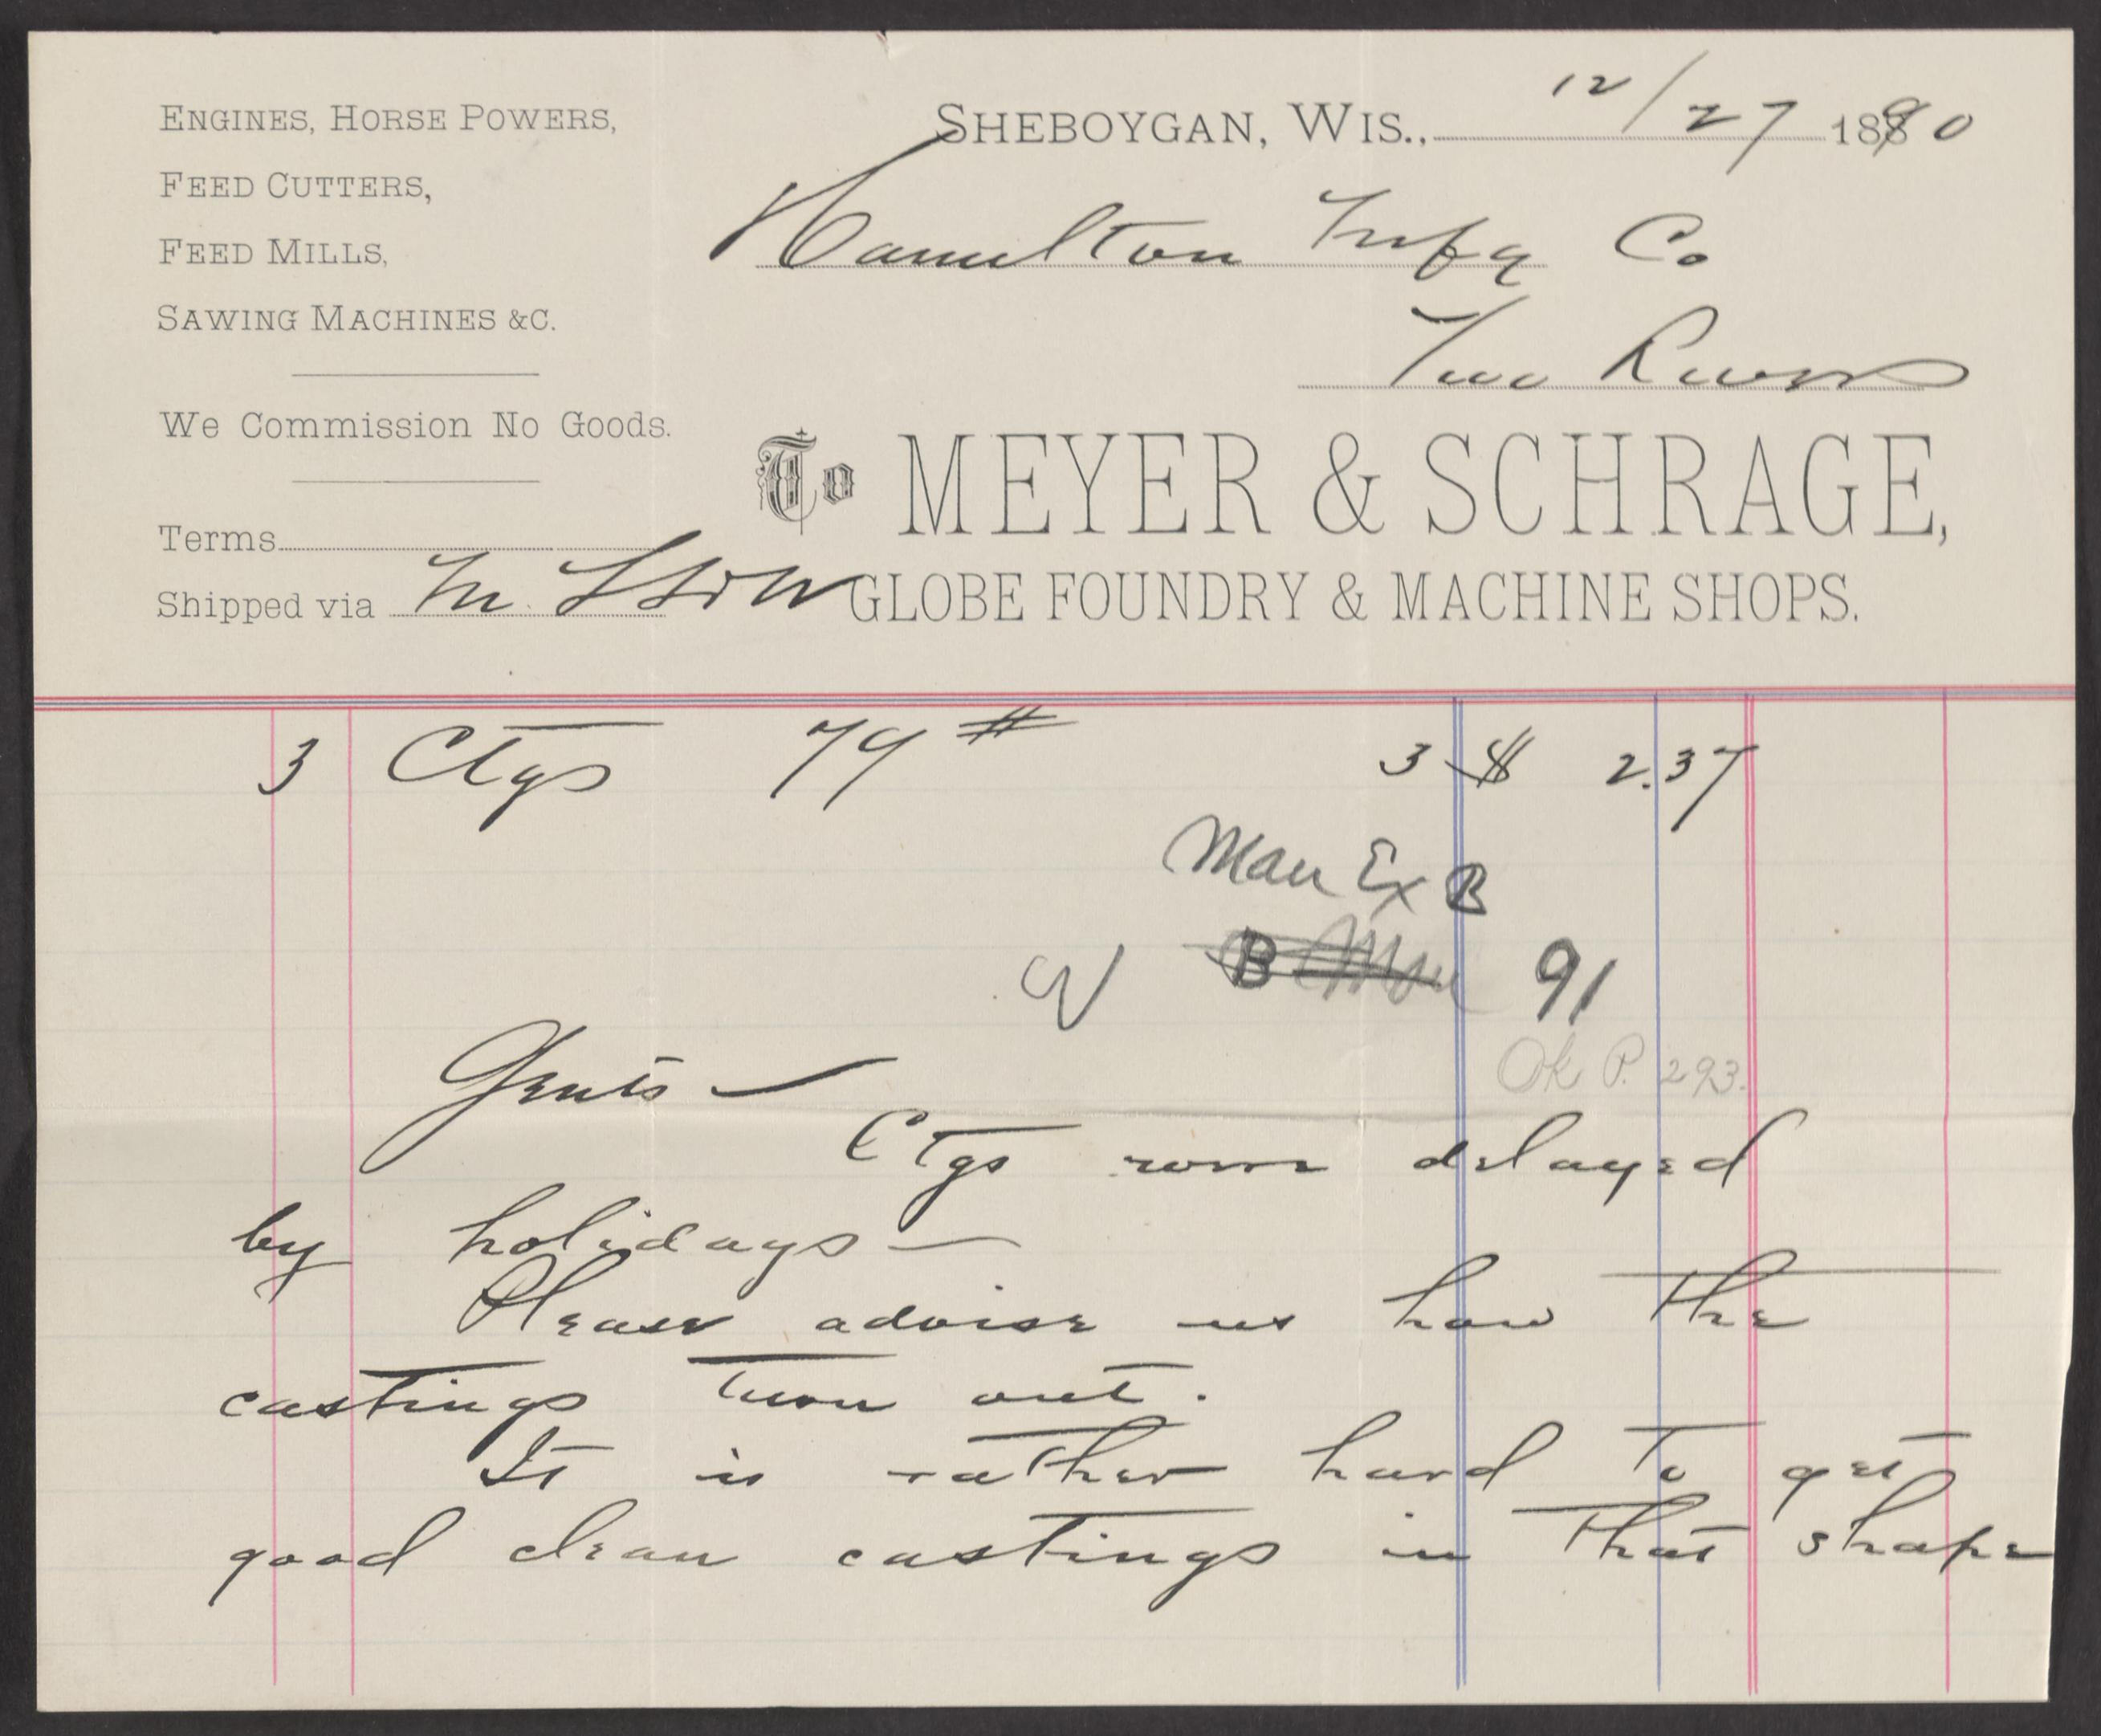 ENGINES, HORSE POWERS,
FEED CUTTERS,
FEED MILLS,
SAWING MACHINES &C.
We Commission No Goods.
Terms
Shipped via M LS & W
SHEBOYGAN, WIS., 12/27 1890
Hamilton Mnfg Co
Two Rivers
To MEYER & SCHRAGE,
GLOBE FOUNDRY & MACHINE SHOPS.
3 Ctgs 79 # 3 $ 2.37
Man Ex B
B Man 91
OK P. 293.
Gents —
Ctgs were delayed
by holidays —
Please advise us how the
castings turn out.
It is rather hard to get
good clean castings in that shape